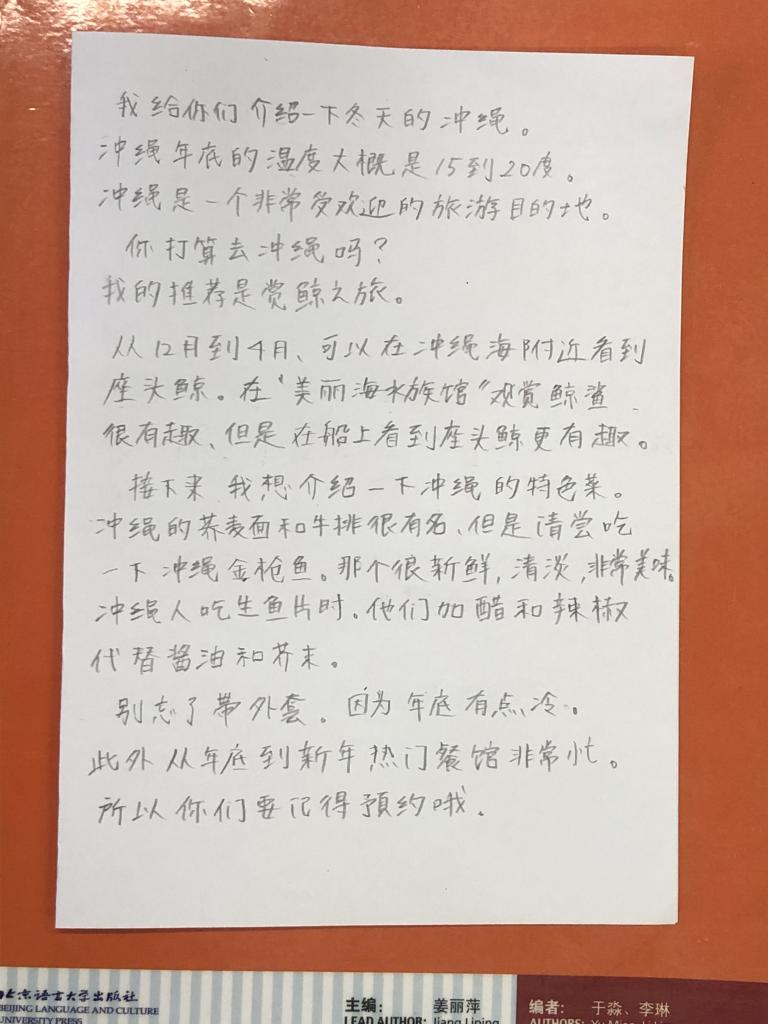 我给你们介绍一下冬天的冲绳。
冲绳年底的温度大概是15到20度。
冲绳是一个非常受欢迎的旅游目的地。
你打算去冲绳吗？
我的推荐是赏鲸之旅。
从12月到4月、可以在冲绳海附近看到
座头鲸。在“美丽海水族馆”观赏鲸鲨
很有趣、但是在船上看到座头鲸更有趣。
接下来 我想介绍一下冲绳的特色菜。
冲绳的荞麦面和牛排很有名、但是请尝吃
一下冲绳金枪鱼。那个很新鲜,清淡,非常美味。
冲绳人吃生鱼片时.他们加醋和辣椒
代替酱油和芥末。
别忘了带外套.因为年底有点冷。
此外从年底到新年热门餐馆非常忙。
所以你们要记得预约哦.
北京语言大学出版社
BEIJING LANGUAGE AND CULTURE
UNIVERSITY PRESS
主编： 姜丽萍
LEAD AUTHOR: Jiang Liping
编者： 于淼、李琳
AUTHORS: